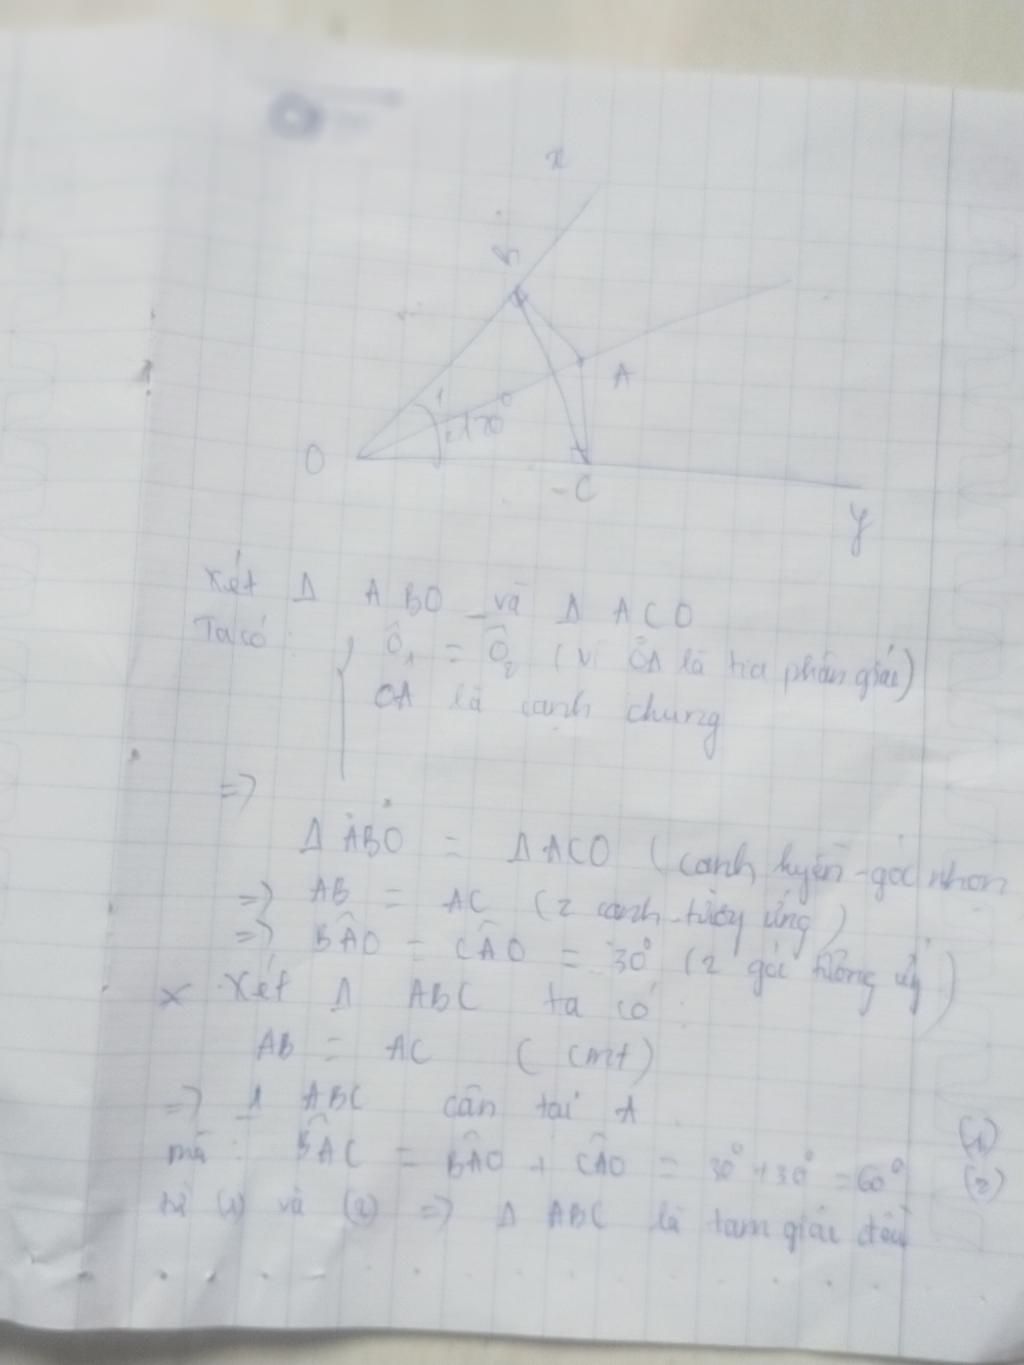 x
B
A
1
2
120°
O
C
y
Xét Δ ABO và Δ ACO
Ta có: Ô₁ = Ô₂ (vì OA là tia phân giác)
OA là cạnh chung
=>
Δ ABO = Δ ACO (cạnh huyền - góc nhọn
=> AB = AC (2 cạnh tương ứng)
=> BÂO = CÂO = 30° (2 góc tương ứng)
x Xét Δ ABC ta có:
AB = AC (cmt)
=> Δ ABC cân tại A (1)
mà: BÂC = BÂO + CÂO = 30° + 30° = 60° (2)
từ (1) và (2) => Δ ABC là tam giác đều